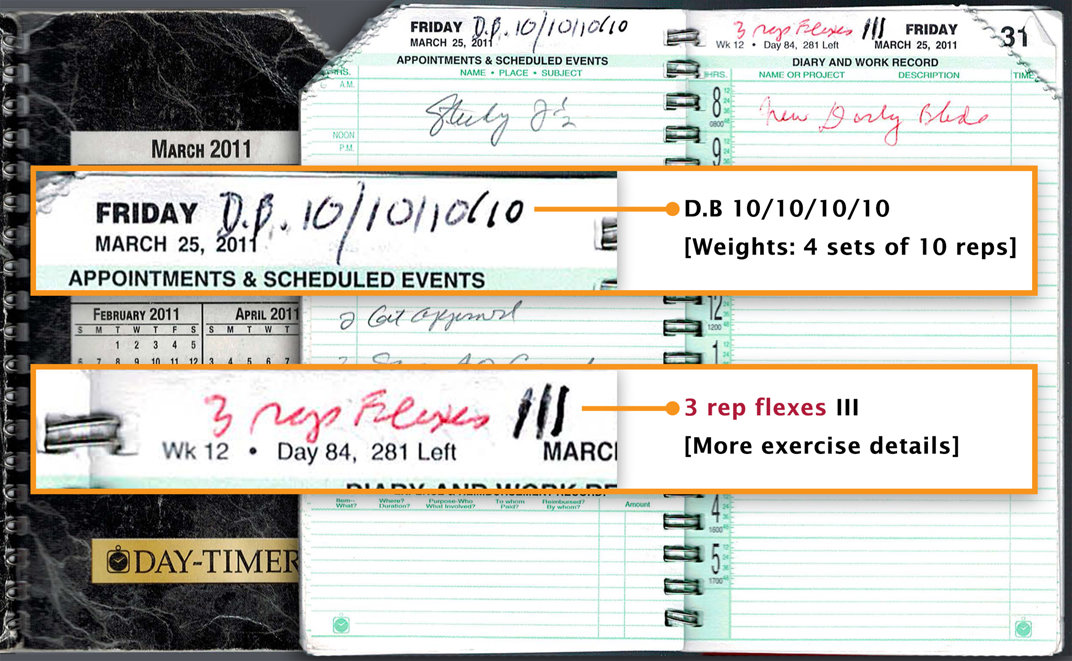 FRIDAY D.B. 10/10/10/10
MARCH 25, 2011
APPOINTMENTS & SCHEDULED EVENTS
HRS. NAME • PLACE • SUBJECT
A.M.
NOON
P.M.
3 rep Flexes III FRIDAY 31
Wk 12 • Day 84, 281 Left MARCH 25, 2011
DIARY AND WORK RECORD
HRS. NAME OR PROJECT DESCRIPTION TIME
8
0800
New Daily
9
MARCH 2011
FRIDAY D.B. 10/10/10/10
MARCH 25, 2011
APPOINTMENTS & SCHEDULED EVENTS
D.B 10/10/10/10
[Weights: 4 sets of 10 reps]
FEBRUARY 2011
S M T W T F S
1 2 3 4 5
6 7 8 9 10 11 12
APRIL 2011
S M T W T
3 4 5 6 7
2
12
1200
1
3 rep Flexes III
Wk 12 • Day 84, 281 Left MARC
DIARY AND WORK RE
3 rep flexes III
[More exercise details]
Item– What? Where? Duration? Purpose-Who What Involved? To whom Paid? Reimbursed? By whom? Amount
4
1600
5
1700
DAY-TIMER